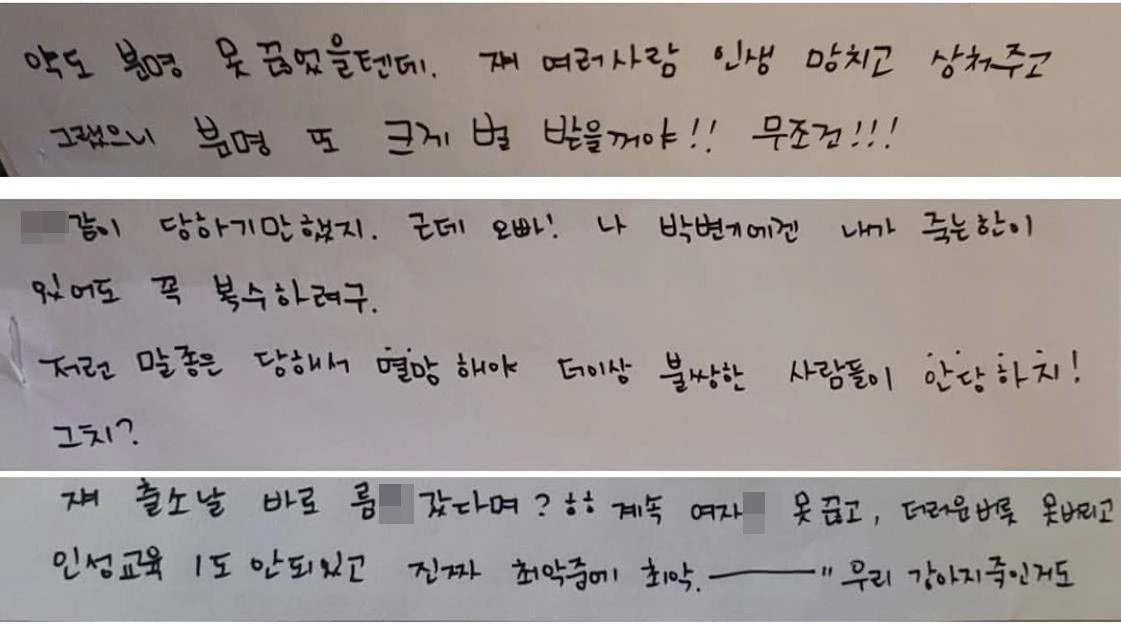 약도 분명 못 끊었을텐데. 쟤 여러사람 인생 망치고 상처주고
그랬으니 분명 또 크게 벌 받을꺼야!! 무조건!!!
같이 당하기만했지. 근데 오빠! 나 박변기에겐 내가 죽는한이
있어도 꼭 복수하려구.
저런 말종은 당해서 멸망해야 더이상 불쌍한 사람들이 안당하지!
그치?
쟤 출소날 바로 룸 갔다며? ㅎㅎ 계속 여자 못끊고, 더러운버릇 못버리고
인성교육 1도 안되있고 진짜 최악중에 최악. ─── " 우리 강아지죽인거도